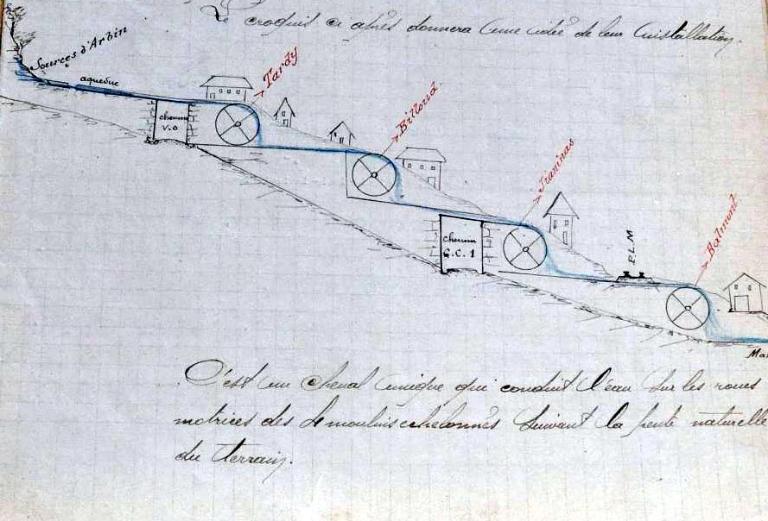 croquis ci après donnera une idée de leur installation.
Sources d'Arbin
aqueduc
Tardy
chemin
V.O
Billoud
Traninas
chemin
G.C.1
P.L.M
Balmont
Mar
C'est un chenal unique qui conduit l'eau sur les roues
motrices des 4 moulins échelonnés suivant la pente naturelle
du terrain.